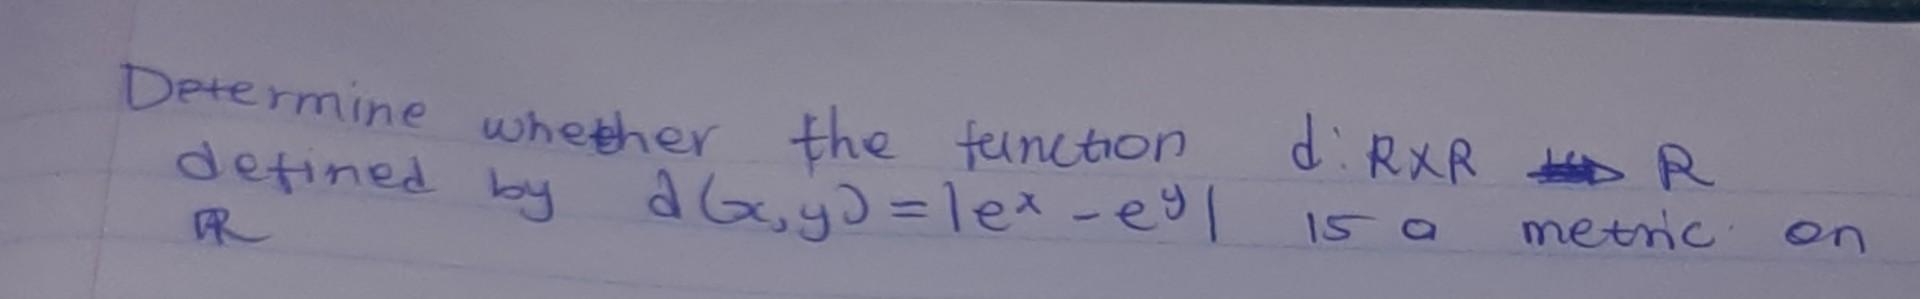 Determine whether the function d: R×R → R
defined by d(x,y) = |e^x - e^y| is a metric on
ℝ